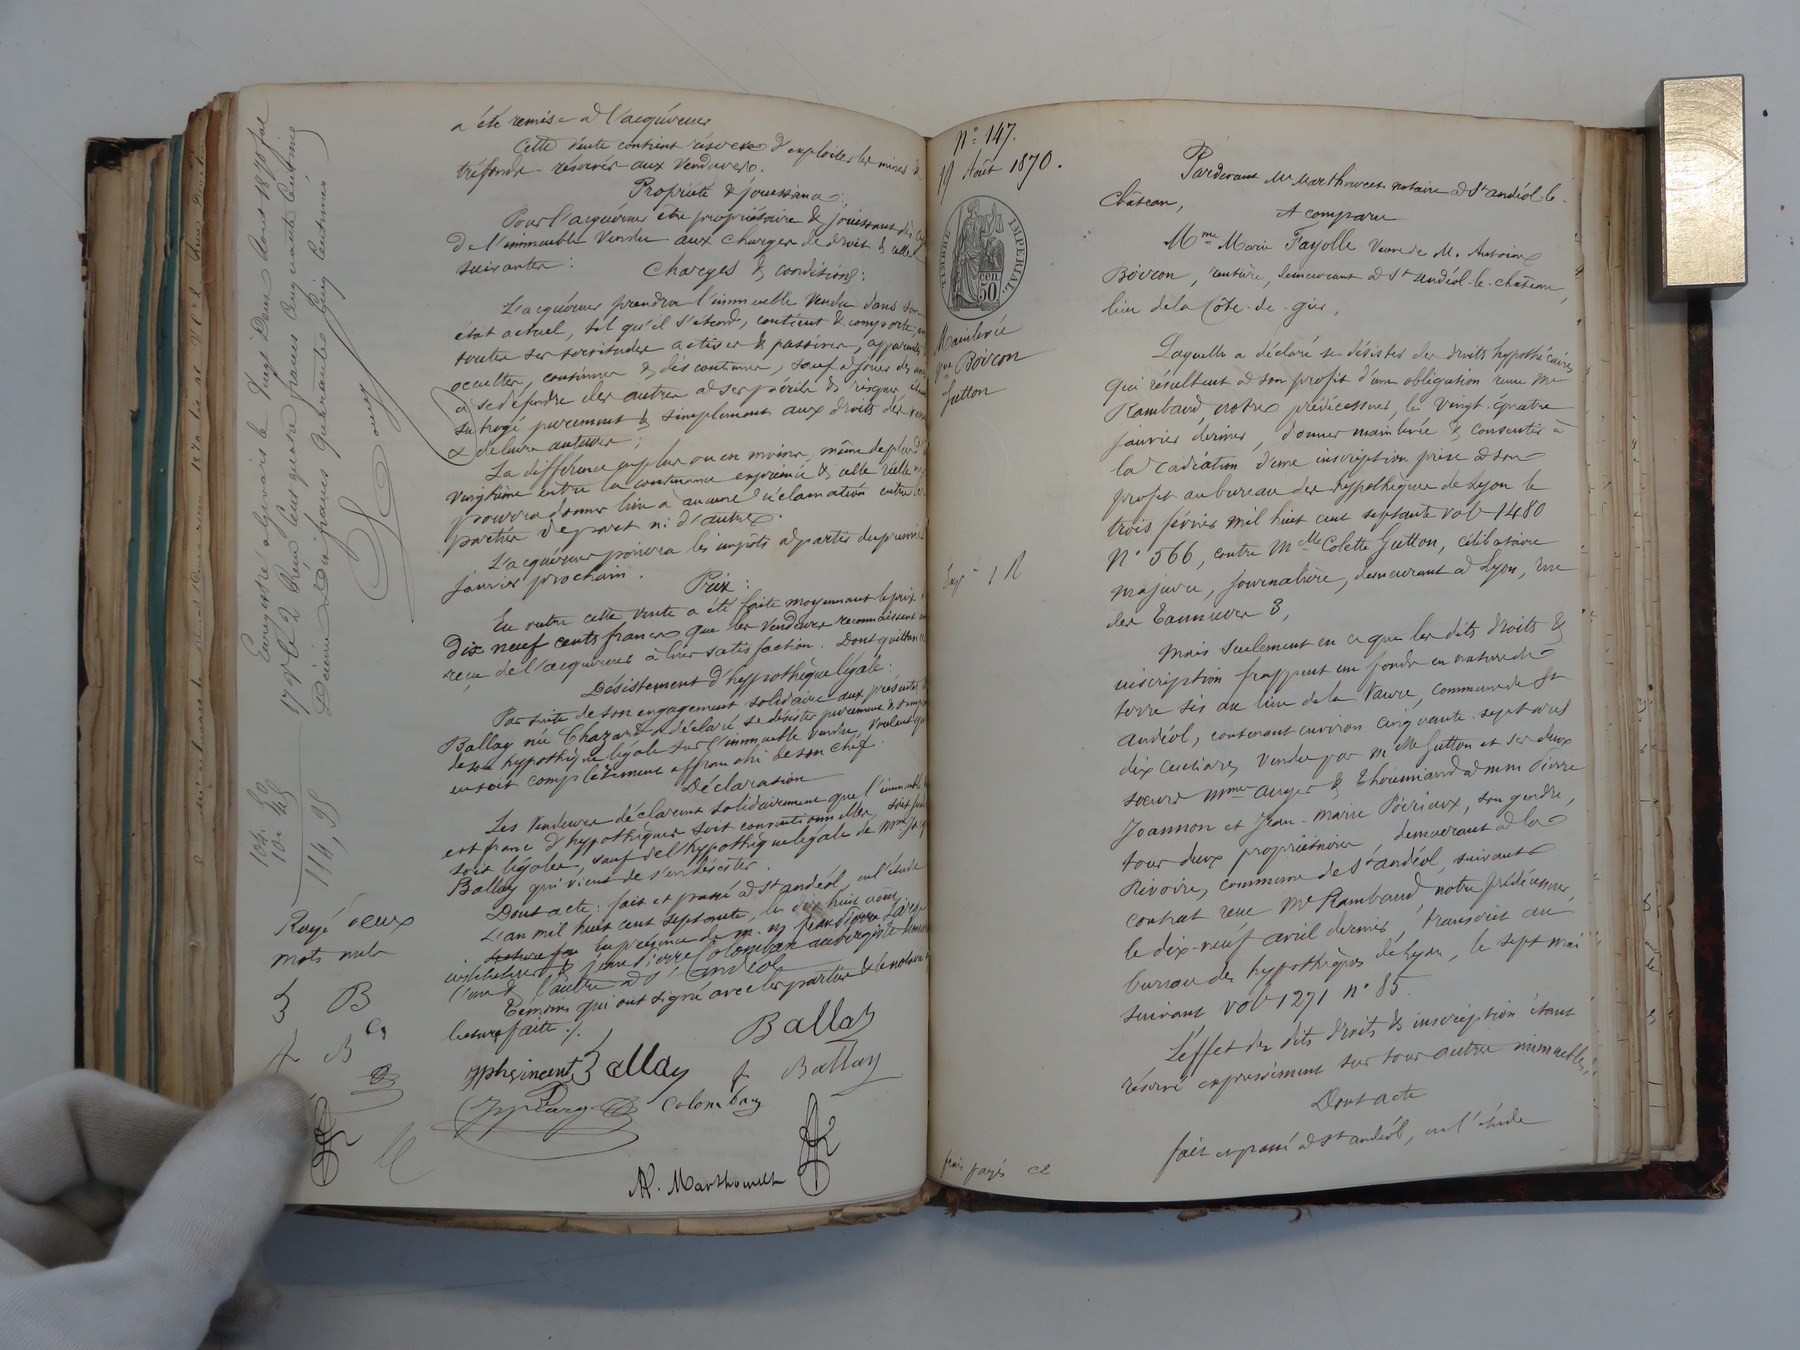 a été remise à l'acquéreur
Cette vente contient réserve d'exploiter les mines &
tréfonds réservés aux vendeurs.
Propriété & jouissance :
Pour l'acquéreur être propriétaire & jouissant dès ce
de l'immeuble vendu aux charges de droit & celles
suivantes :
Charges & conditions :
L'acquéreur prendra l'immeuble vendu dans son
état actuel, tel qu'il s'étend, contient & comporte,
toutes ses servitudes actives & passives, apparentes
occultes, continues & discontinues, sauf à jouir des unes
& se défendre des autres à ses périls & risques, étant
subrogé purement & simplement aux droits des
& de leurs auteurs ;
La différence en plus ou en moins, même de plus d'un
vingtième entre la contenance exprimée & celle réelle ne
pourra donner lieu à aucune réclamation entre les
parties de part ni d'autre.
L'acquéreur paiera les impôts à partir du premier
janvier prochain.
Prix :
En outre cette vente a été faite moyennant le prix
Dix neuf cents francs que les vendeurs reconnaissent
reçu de l'acquéreur à leur satisfaction. Dont quittance
Désistement d'hypothèque légale :
Par suite de son engagement solidaire aux présentes
Ballay née Chazard a déclaré se désister purement &
de son hypothèque légale sur l'immeuble vendu, voulant qu'il
en soit complètement affranchi de son chef.
Déclaration
Les vendeurs déclarent solidairement que l'immeuble
est franc d'hypothèques soit conventionnelles, soit
soit légales, sauf de l'hypothèque légale de Mme
Ballay qui vient de s'en désister.
Dont acte : fait et passé à St andéol, en l'étude
L'an mil huit cent septante, le dix huit août,
lecture faite en présence de M. M. jean pierre
& jean Pierre Colomban aubergiste
l'un & l'autre à St andéol
Témoins qui ont signé avec les parties & le notaire
lecture faite ./.
Ballay
Ballay
f Ballay
Colomban
AR. Marthouret
Enregistré à Givors le Vingt Deux Août 1870 fol
179 Vo C 2 Reçu Cent quatre francs Cinquante centimes
Décime Dix francs Quarante Cinq centimes
104. 50
10. 45
114, 95
Rayé deux
mots nuls
B
f B
No 147.
19 Août 1870.
TIMBRE IMPERIAL
50 cen
Mainlevée
Boiron
Gutton
1 R
frais payés
Pardevant Me Marthouret notaire à St andéol-le-
Château,
A comparu
Mme Marie Fayolle Veuve de M. Antoine
Boiron, rentière, demeurant à St andéol-le-château,
lieu de la Côte-de-gier,
Laquelle a déclaré se désister des droits hypothécaires
qui résultent à son profit d'une obligation reçue Me
Rambaud, notre prédécesseur, le vingt-quatre
janvier dernier, donner mainlevée & consentir à
la radiation d'une inscription prise à son
profit au bureau des hypothèques de Lyon le
trois février mil huit cent septante vol 1480
No 566, contre Mlle Colette Gutton, célibataire
majeure, journalière, demeurant à Lyon, rue
des Tanneurs 3,
Mais seulement en ce que les dits droits &
inscription frappent un fonds en nature de
terre sis au lieu de la Vaure, commune de St
andéol, contenant environ cinquante-sept ares
dix centiares vendu par Mlle Gutton et ses deux
soeurs Mmes Auger & Thouniard à MM Pierre
Joannon et Jean-Marie Poiriaux, son gendre,
tous deux propriétaires demeurant à la
Rivoire, commune de St andéol, suivant
contrat reçu Me Rambaud, notre prédécesseur,
le dix-neuf avril dernier, transcrit au
bureau des hypothèques de Lyon, le sept mai
suivant vol 1271 no 85.
L'effet des dits droits & inscription étant
réservé expressément sur tous autres immeubles,
Dont acte
fait et passé à St andéol, en l'étude